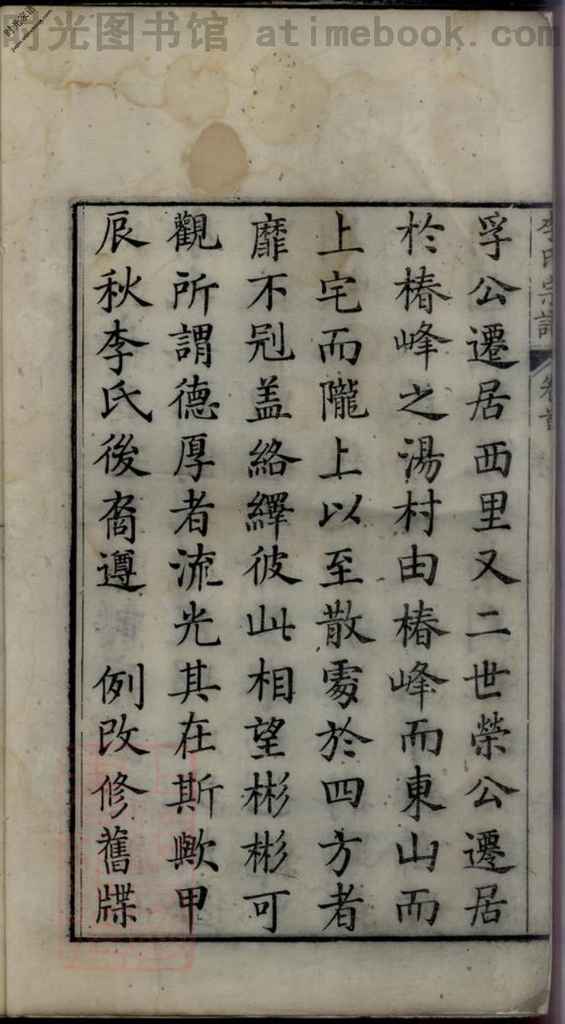 时光图书馆 atimebook.com
李氏宗譜 卷首
孚公遷居西里又二世榮公遷居
於椿峰之湯村由椿峰而東山而
上宅而隴上以至散處於四方者
靡不冠盖絡繹彼此相望彬彬可
觀所謂德厚者流光其在斯歟甲
辰秋李氏後裔遵 例改修舊牒